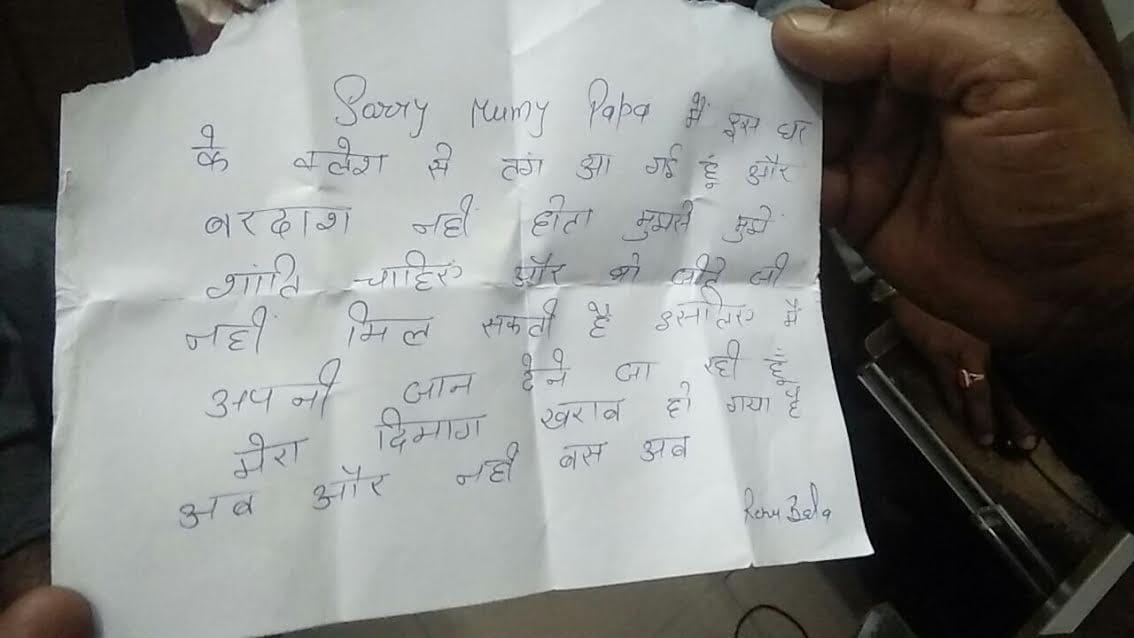 Sorry Mumy Papa मैं इस घर
के क्लेश से तंग आ गई हूं और
बरदाश नहीं होता मुझसे मुझे
शांति चाहिए और वो जीते जी
नहीं मिल सकती है इसलिए मैं
अपनी जान देने जा रही हूँ
मेरा दिमाग खराब हो गया है
अब और नहीं बस अब
Renu Bala